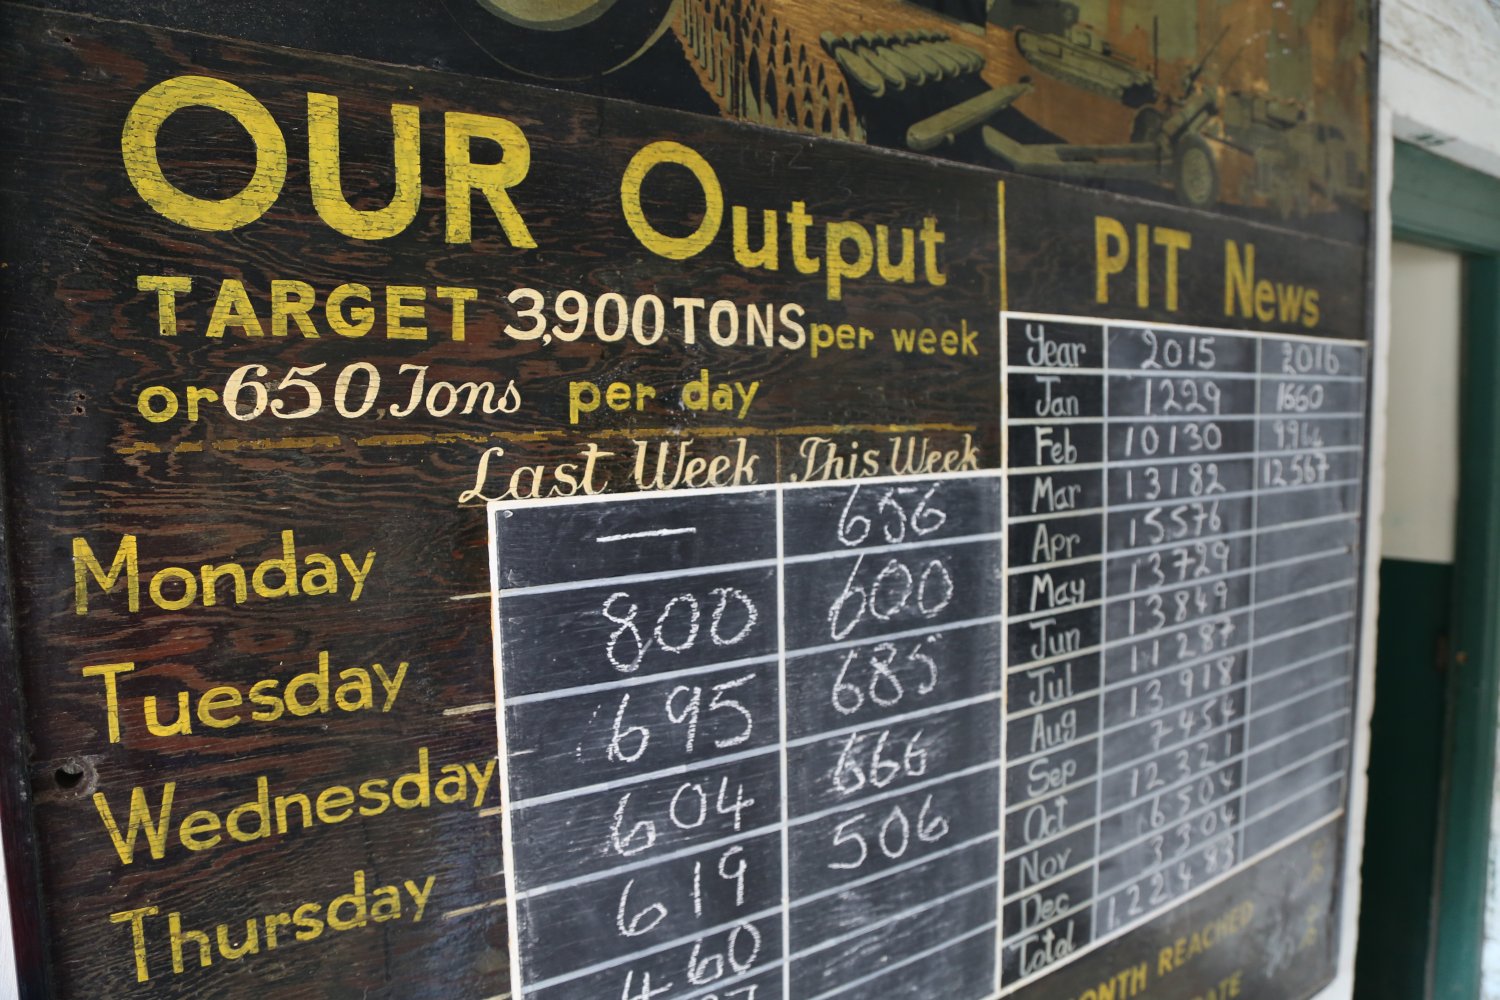 OUR Output
TARGET 3,900 TONS per week
or 650 Tons per day
Last Week This Week
Monday — 656
Tuesday 800 600
Wednesday 695 685
Thursday 604 666
619 506
460
PIT News
Year 2015 2016
Jan 1229 1660
Feb 10130 9964
Mar 13182 12567
Apr 15576
May 13729
Jun 13849
Jul 11287
Aug 13918
Sep 7454
Oct 12321
Nov 6504
Dec 3304
Total 122483
MONTH REACHED
DATE